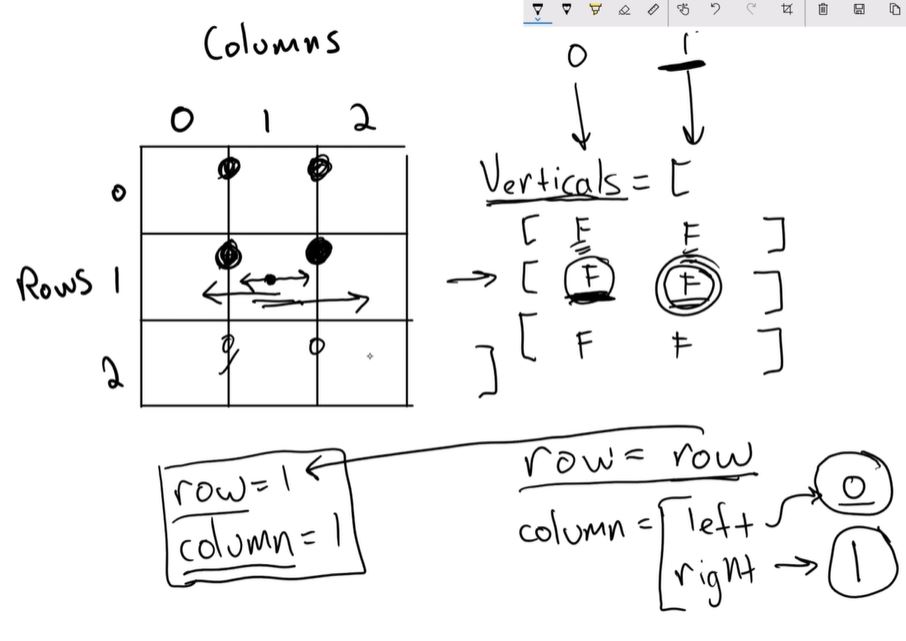 Columns
0 1 2
0
Rows 1
2
0 1
Verticals = [
[ F F ]
[ F F ]
[ F F ]
]
row = 1
column = 1
row = row
column = [ left 0
right 1